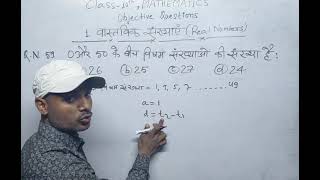 Class-10th, MATHEMATICS
Objective Questions
1. वास्तविक संख्याएँ (Real Numbers)
Q.N 59 0 और 50 के बीच विषम संख्याओं की संख्या है:
26 (b) 25 (c) 27 (d) 24
संख्या = 1, 3, 5, 7 ........ 49
a = 1
d = t₂ - t₁